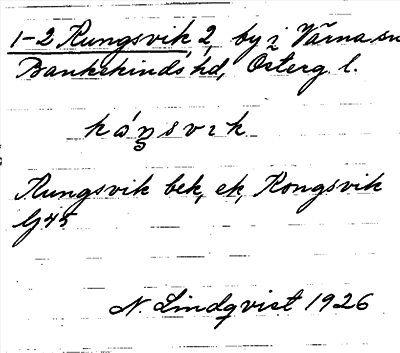 1-2 Kungsvik 2, by i Värna sn
Bankekinds hd, Österg. l.
kóŋsvik
Kungsvik bek, ek, Kongsvik
Gj45
N. Lindqvist 1926